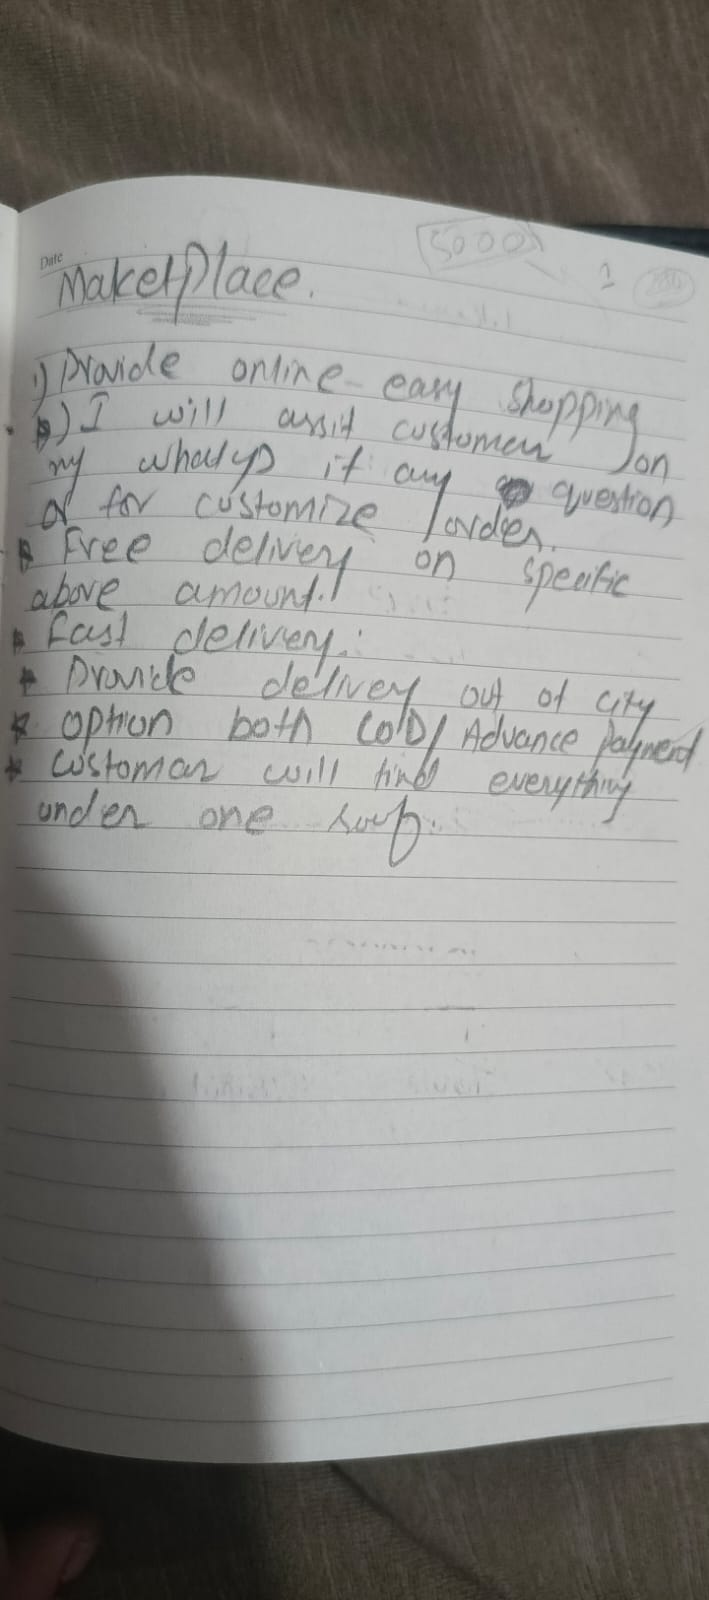 5000
1
Date
MaketPlace.
1) Provide online easy shopping
) I will assit customer on
my whatsap if any question
or for customize order.
* Free delivery on specific
above amount.
* Fast delivery.
* Provide delivery out of city
* option both COD/ Advance payment
* customar will find everything
under one roof.